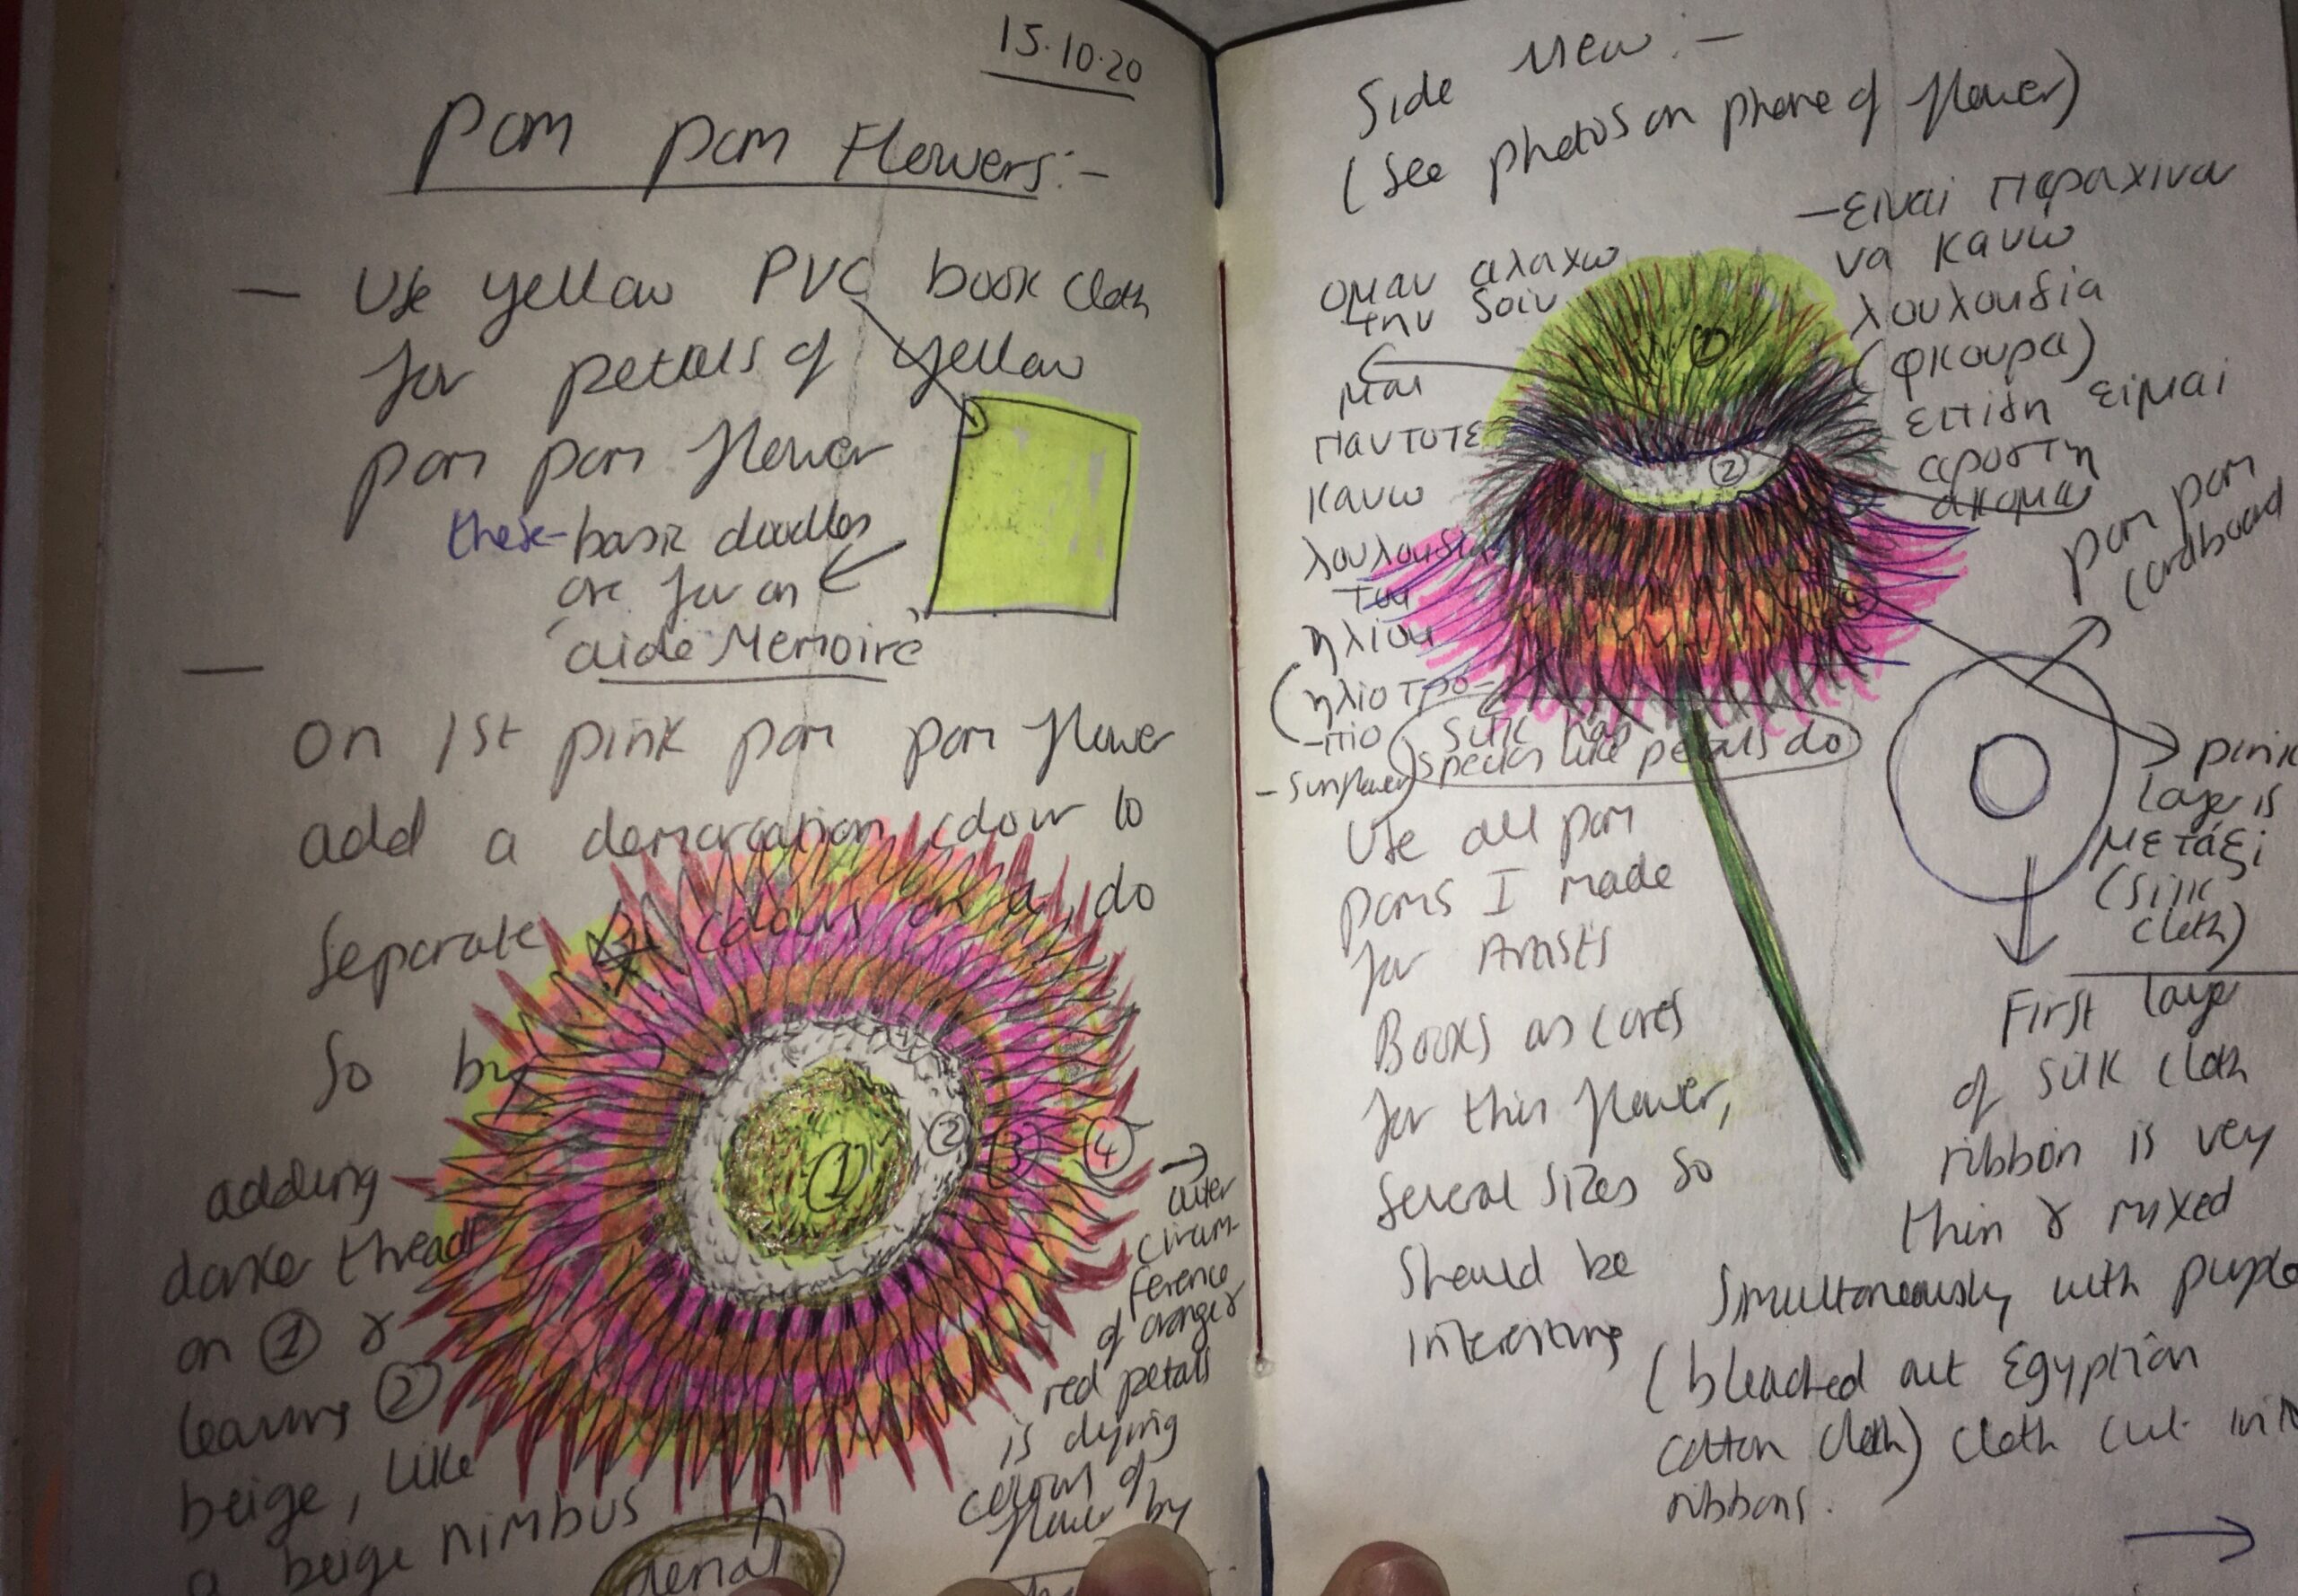 15.10.20
Pom pom Flowers:-
— Use yellow PVC book cloth
for petals of yellow
pom pom flower
these - basic doodles
are for an
'aide Memoire'
—
On 1st pink pom pom flower
add a demarcation colour to
separate colours on a, do
so by
adding
darker thread
on ① &
leaving ②
beige, like
a beige nimbus
① ② ③ ④
→ outer
circum-
ference
of orange &
red petals
is dying
colours of
flower by
aerial
Side view :-
(See photos on phone of flower)
— ειναι παραχινα
να κανω
λουλουδια
(φκουρα)
επιδη ειμαι
αροστη
ακομα
ομαν αλαχω
την
μαι
παντοτε
κανω
λουλουδι
του
ηλιου
(ηλιοτρο-
-πιο
- Sunflower)
①
②
silk has
species like petals do
pom pom
cardboard
→ pink
layer is
μετάξι
(silk
cloth)
Use all pom
poms I made
for Artists
Books as cores
for this flower,
several sizes so
should be
interesting
First layer
of silk cloth
ribbon is very
thin & mixed
simultaneously with purple
(bleached out Egyptian
cotton cloth) cloth cut into
ribbons.
→